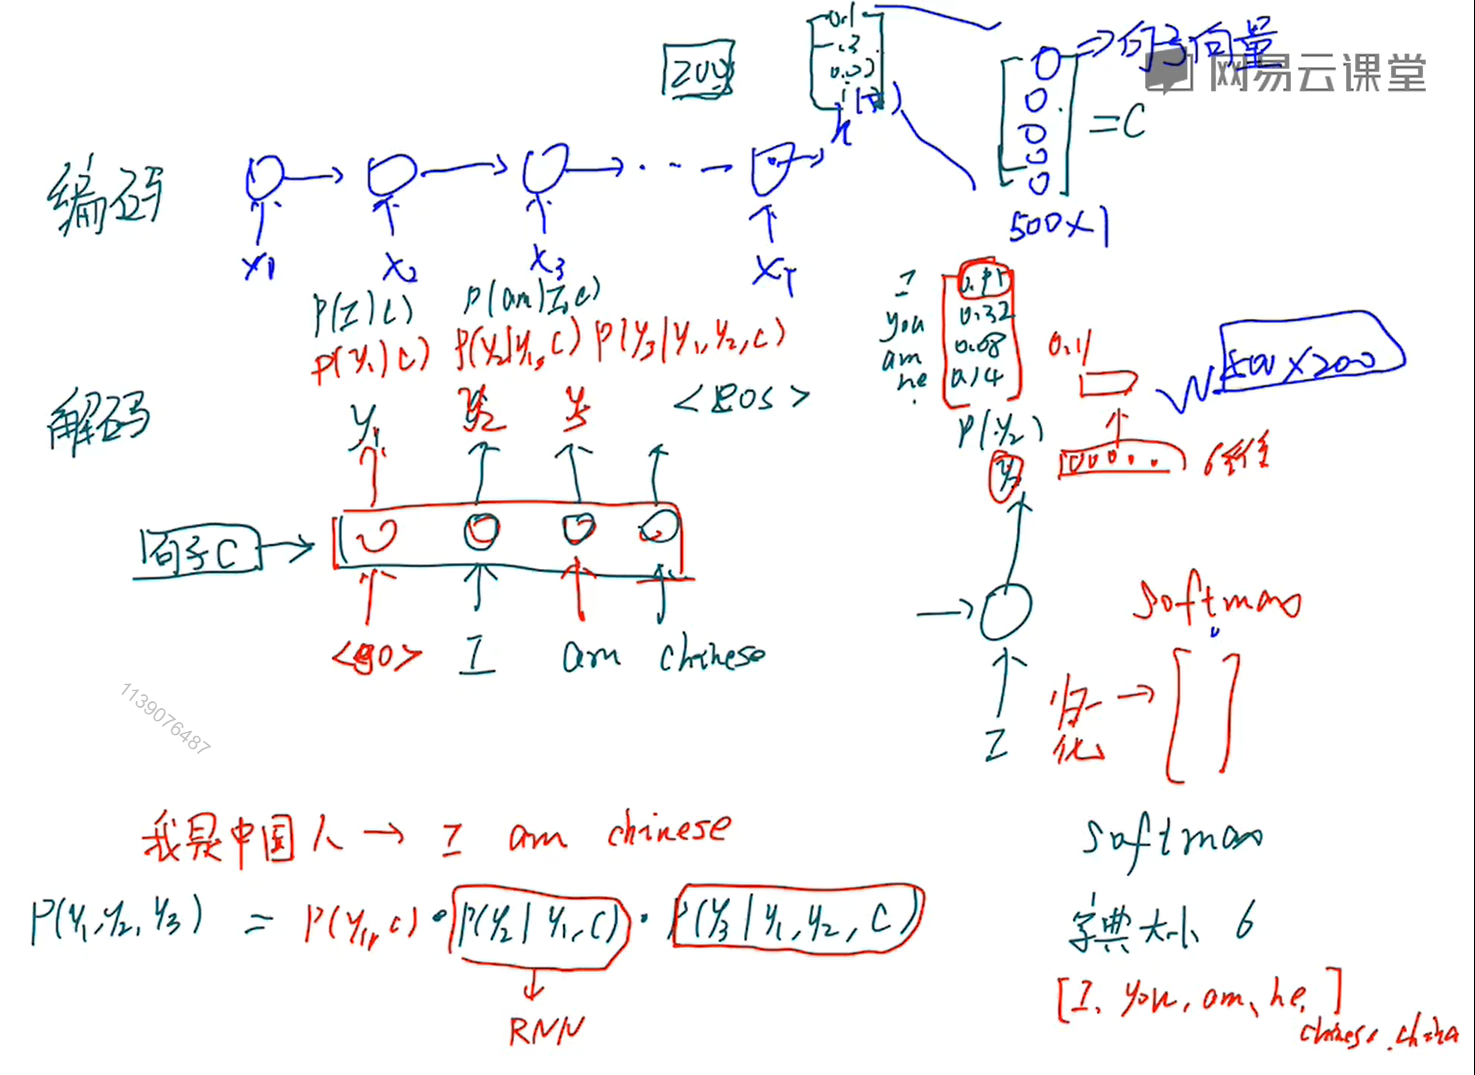 200
0.1
网易云课堂
=> 句子向量
= C
h
500×1
编码
x1 x2 x3 ... xT
P(I|C) P(am|I,C)
P(y1|C) P(y2|y1,C) P(y3|y1,y2,C)
解码
y1 y2 y3 <eos>
句子C
<go> I am chinese
I 0.91
you 0.32
am 0.08
he 0.14
P(y2)
y2
0.1
W 500×200
6维
I
softmax
归一化
1139076487
我是中国人 → I am chinese
P(y1,y2,y3) = P(y1,C)·P(y2|y1,C)·P(y3|y1,y2,C)
RNN
softmax
字典大小 6
[I, you, am, he,]
chinese, china